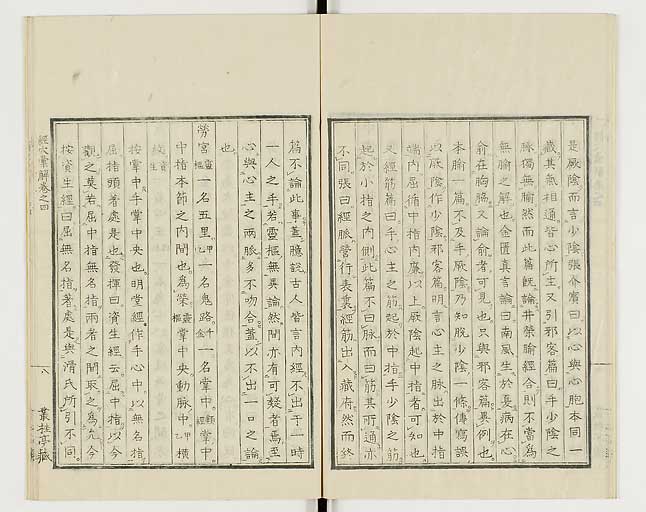 是厥陰而言少陰張介賓曰以心與心胞本同一
藏其氣相通皆心所主又引邪客篇曰手少陰之
脉獨無腧然而此篇既論井滎腧經合則不當爲
無腧之解也金匱真言論曰南風生於夏病在心
俞在胸脇又論俞者可見也只與邪客篇異例也
本腧一篇不及手厥陰乃知脫少陰一條傳寫誤
以厥陰作少陰邪客篇明言心主之脉出於中指
端内屈循中指内廉以上厥陰起中指者可知也
又經筋篇曰手心主之筋起於中指手少陰之筋
起於小指之内側此篇不曰脉而曰筋其所通亦
不同張曰經脈營行表裏經筋出入藏府然而終
篇不論此事蓋臆説古人皆言内經不出于一時
一人之手若靈樞無異論然間亦有可疑者焉至
心與心主之兩脈多不吻合蓋以不出一口之論
也
勞宮靈樞一名五里甲乙一名鬼路千金一名掌中類經掌中
中指本節之内間也爲滎靈樞掌中央動脈中甲乙横
紋資生
按掌中手掌中央也明堂經作手心中以無名指
屈指頭著處是也發揮曰資生經云屈中指以今
觀之莫若屈中指無名指兩者之間取之爲允今
按資生經曰屈無名指著處是與滑氏所引不同
經穴彙解卷之四
八
叢桂亭藏